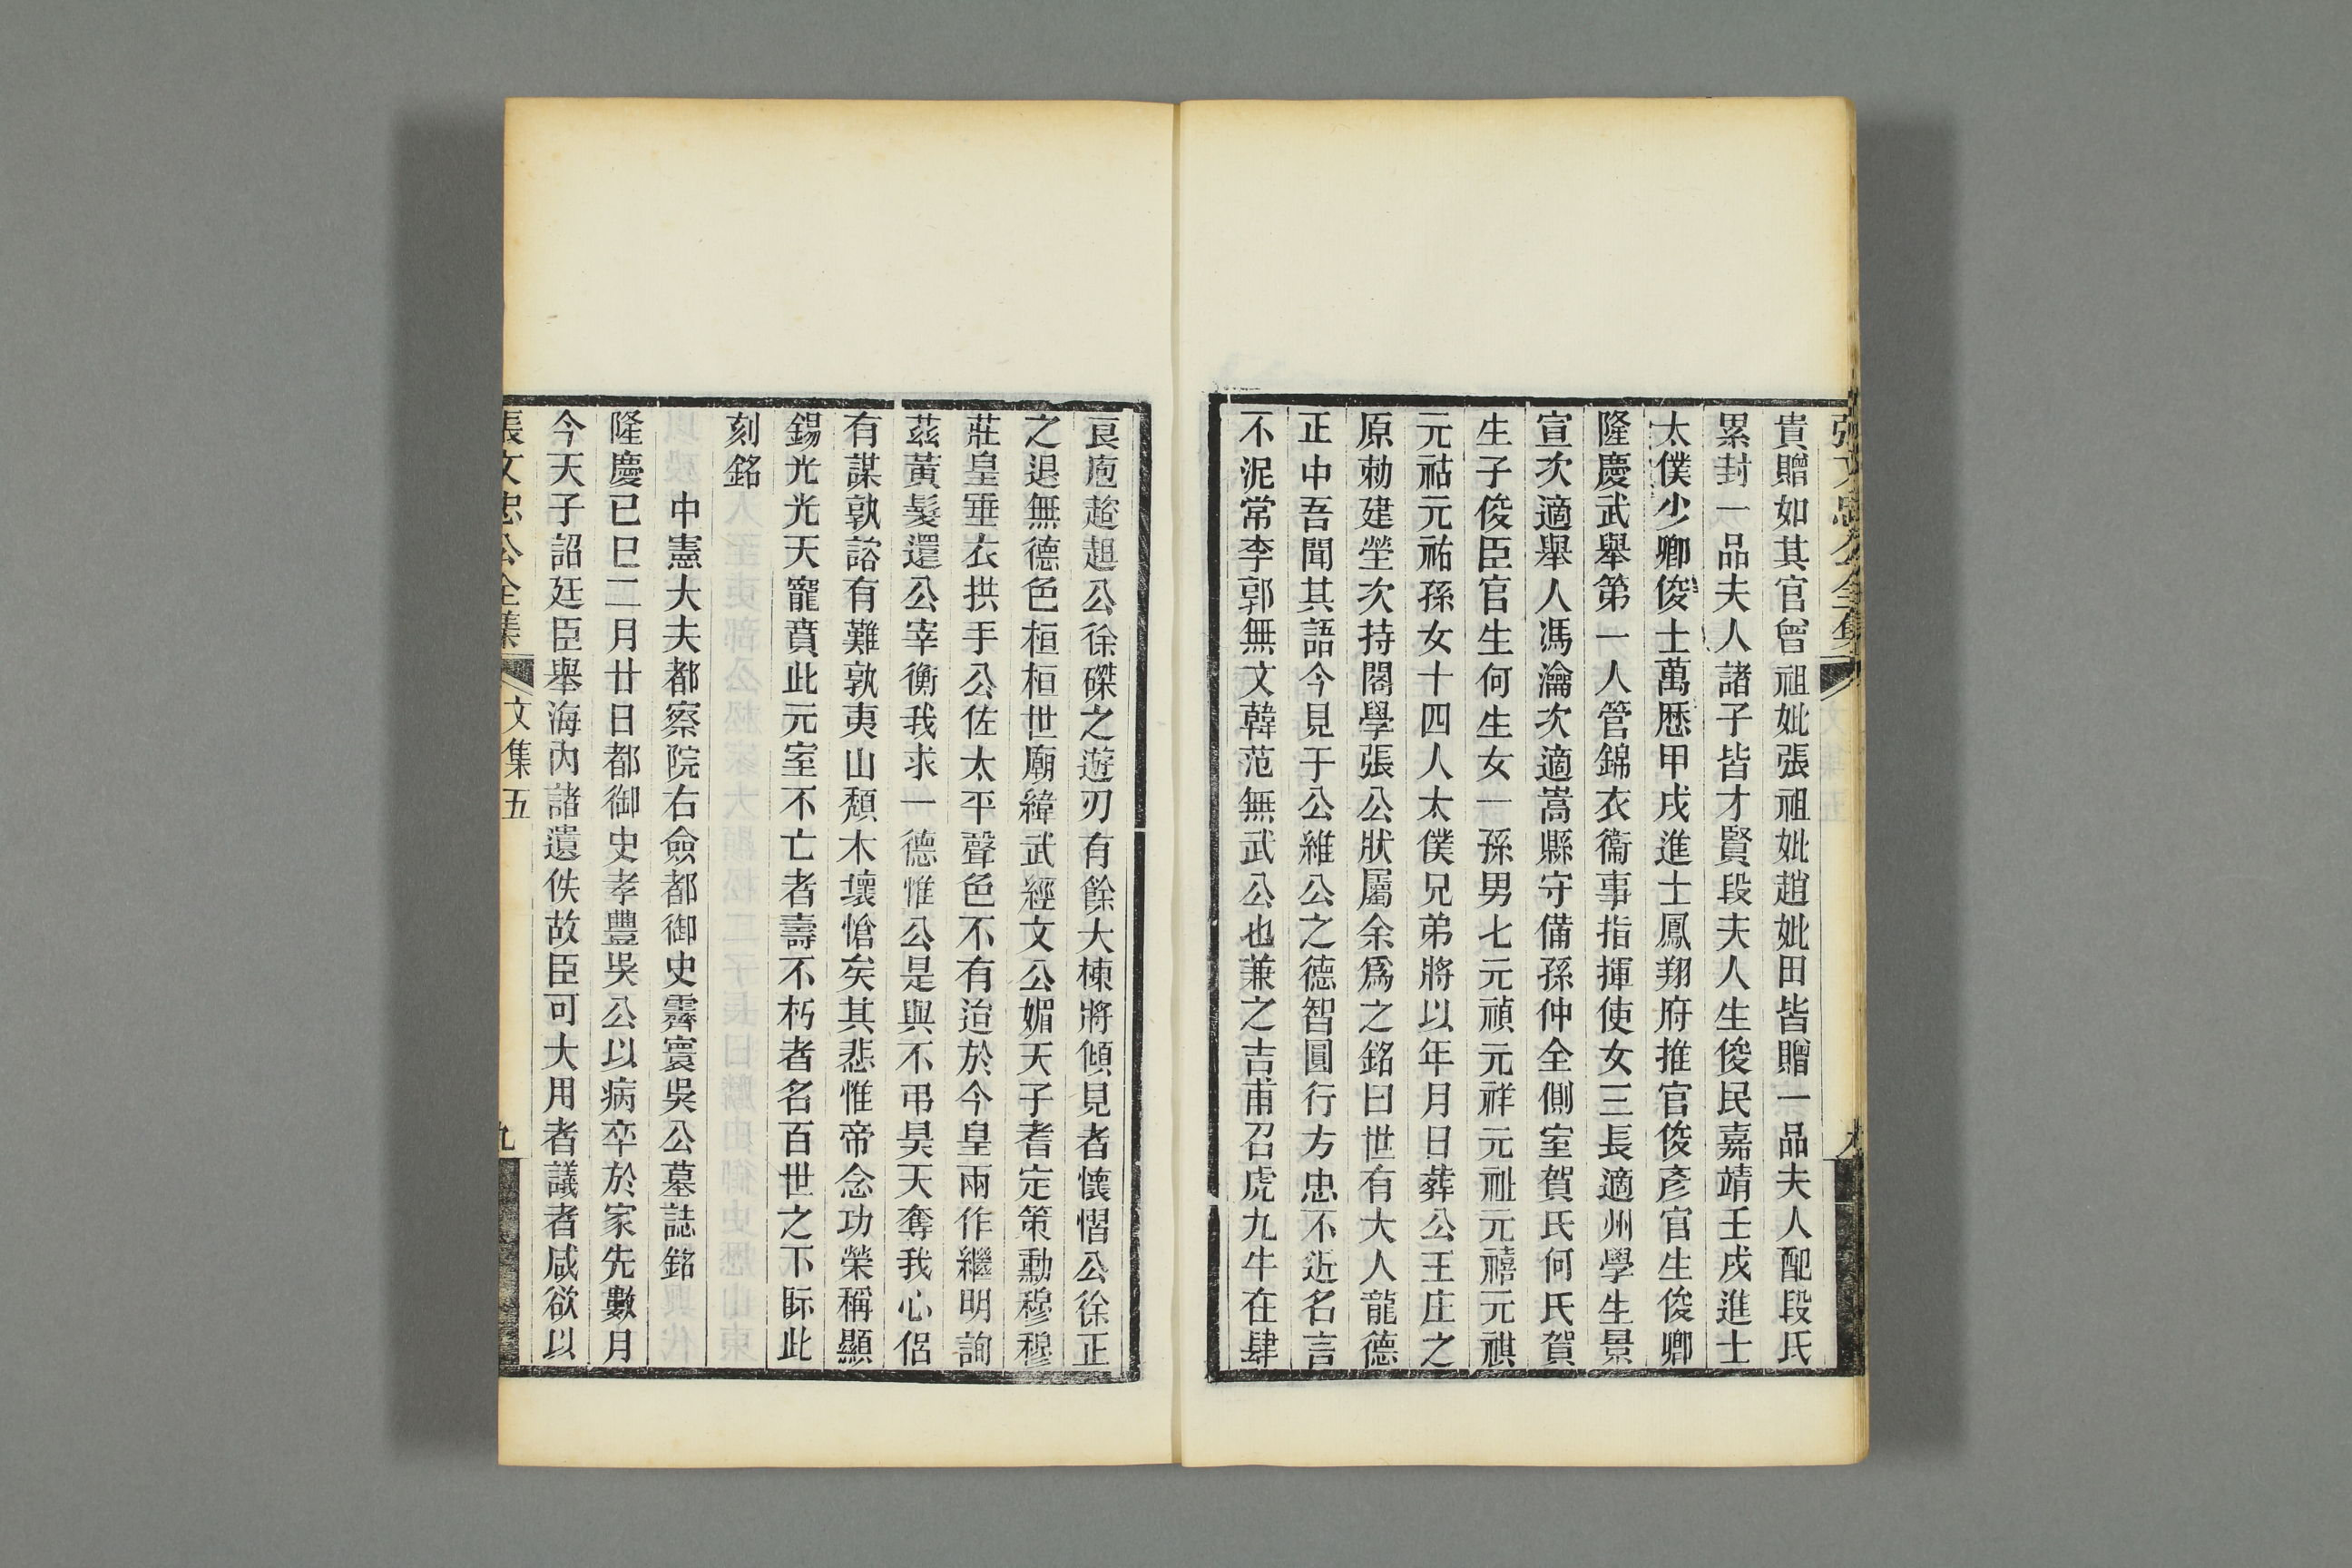 張文忠公全集
貴贈如其官曾祖妣張祖妣趙妣田皆贈一品夫人配段氏
累封一品夫人諸子皆才賢段夫人生俊民嘉靖壬戌進士
太僕少卿俊士萬歷甲戌進士鳳翔府推官俊彥官生俊卿
隆慶武舉第一人管錦衣衞事指揮使女三長適州學生景
宣次適舉人馮瀹次適嵩縣守備孫仲全側室賀氏何氏賀
生子俊臣官生何生女一孫男七元禎元祥元祉元禧元祺
元祜元祐孫女十四人太僕兄弟將以年月日葬公王庄之
原勅建塋次持閣學張公狀屬余爲之銘曰世有大人龍德
正中吾聞其語今見于公維公之德智圓行方忠不近名言
不泥常李郭無文韓范無武公也兼之吉甫召虎九牛在肆
良庖趑趄公徐磔之遊刃有餘大棟將傾見者懷慴公徐正
之退無德色桓桓世廟緯武經文公媚天子耆定策勳穆穆
莊皇垂衣拱手公佐太平聲色不有迨於今皇兩作繼明詢
茲黃髮還公宰衡我求一德惟公是與不弔昊天奪我心侶
有謀孰諮有難孰夷山頹木壞愴矣其悲惟帝念功榮稱顯
錫光光天寵賁此元室不亡者壽不朽者名百世之下眎此
刻銘
中憲大夫都察院右僉都御史霽寰吳公墓誌銘
隆慶己巳二月廿日都御史孝豐吳公以病卒於家先數月
今天子詔廷臣舉海內諸遺佚故臣可大用者議者咸欲以
張文忠公全集 文集五 九